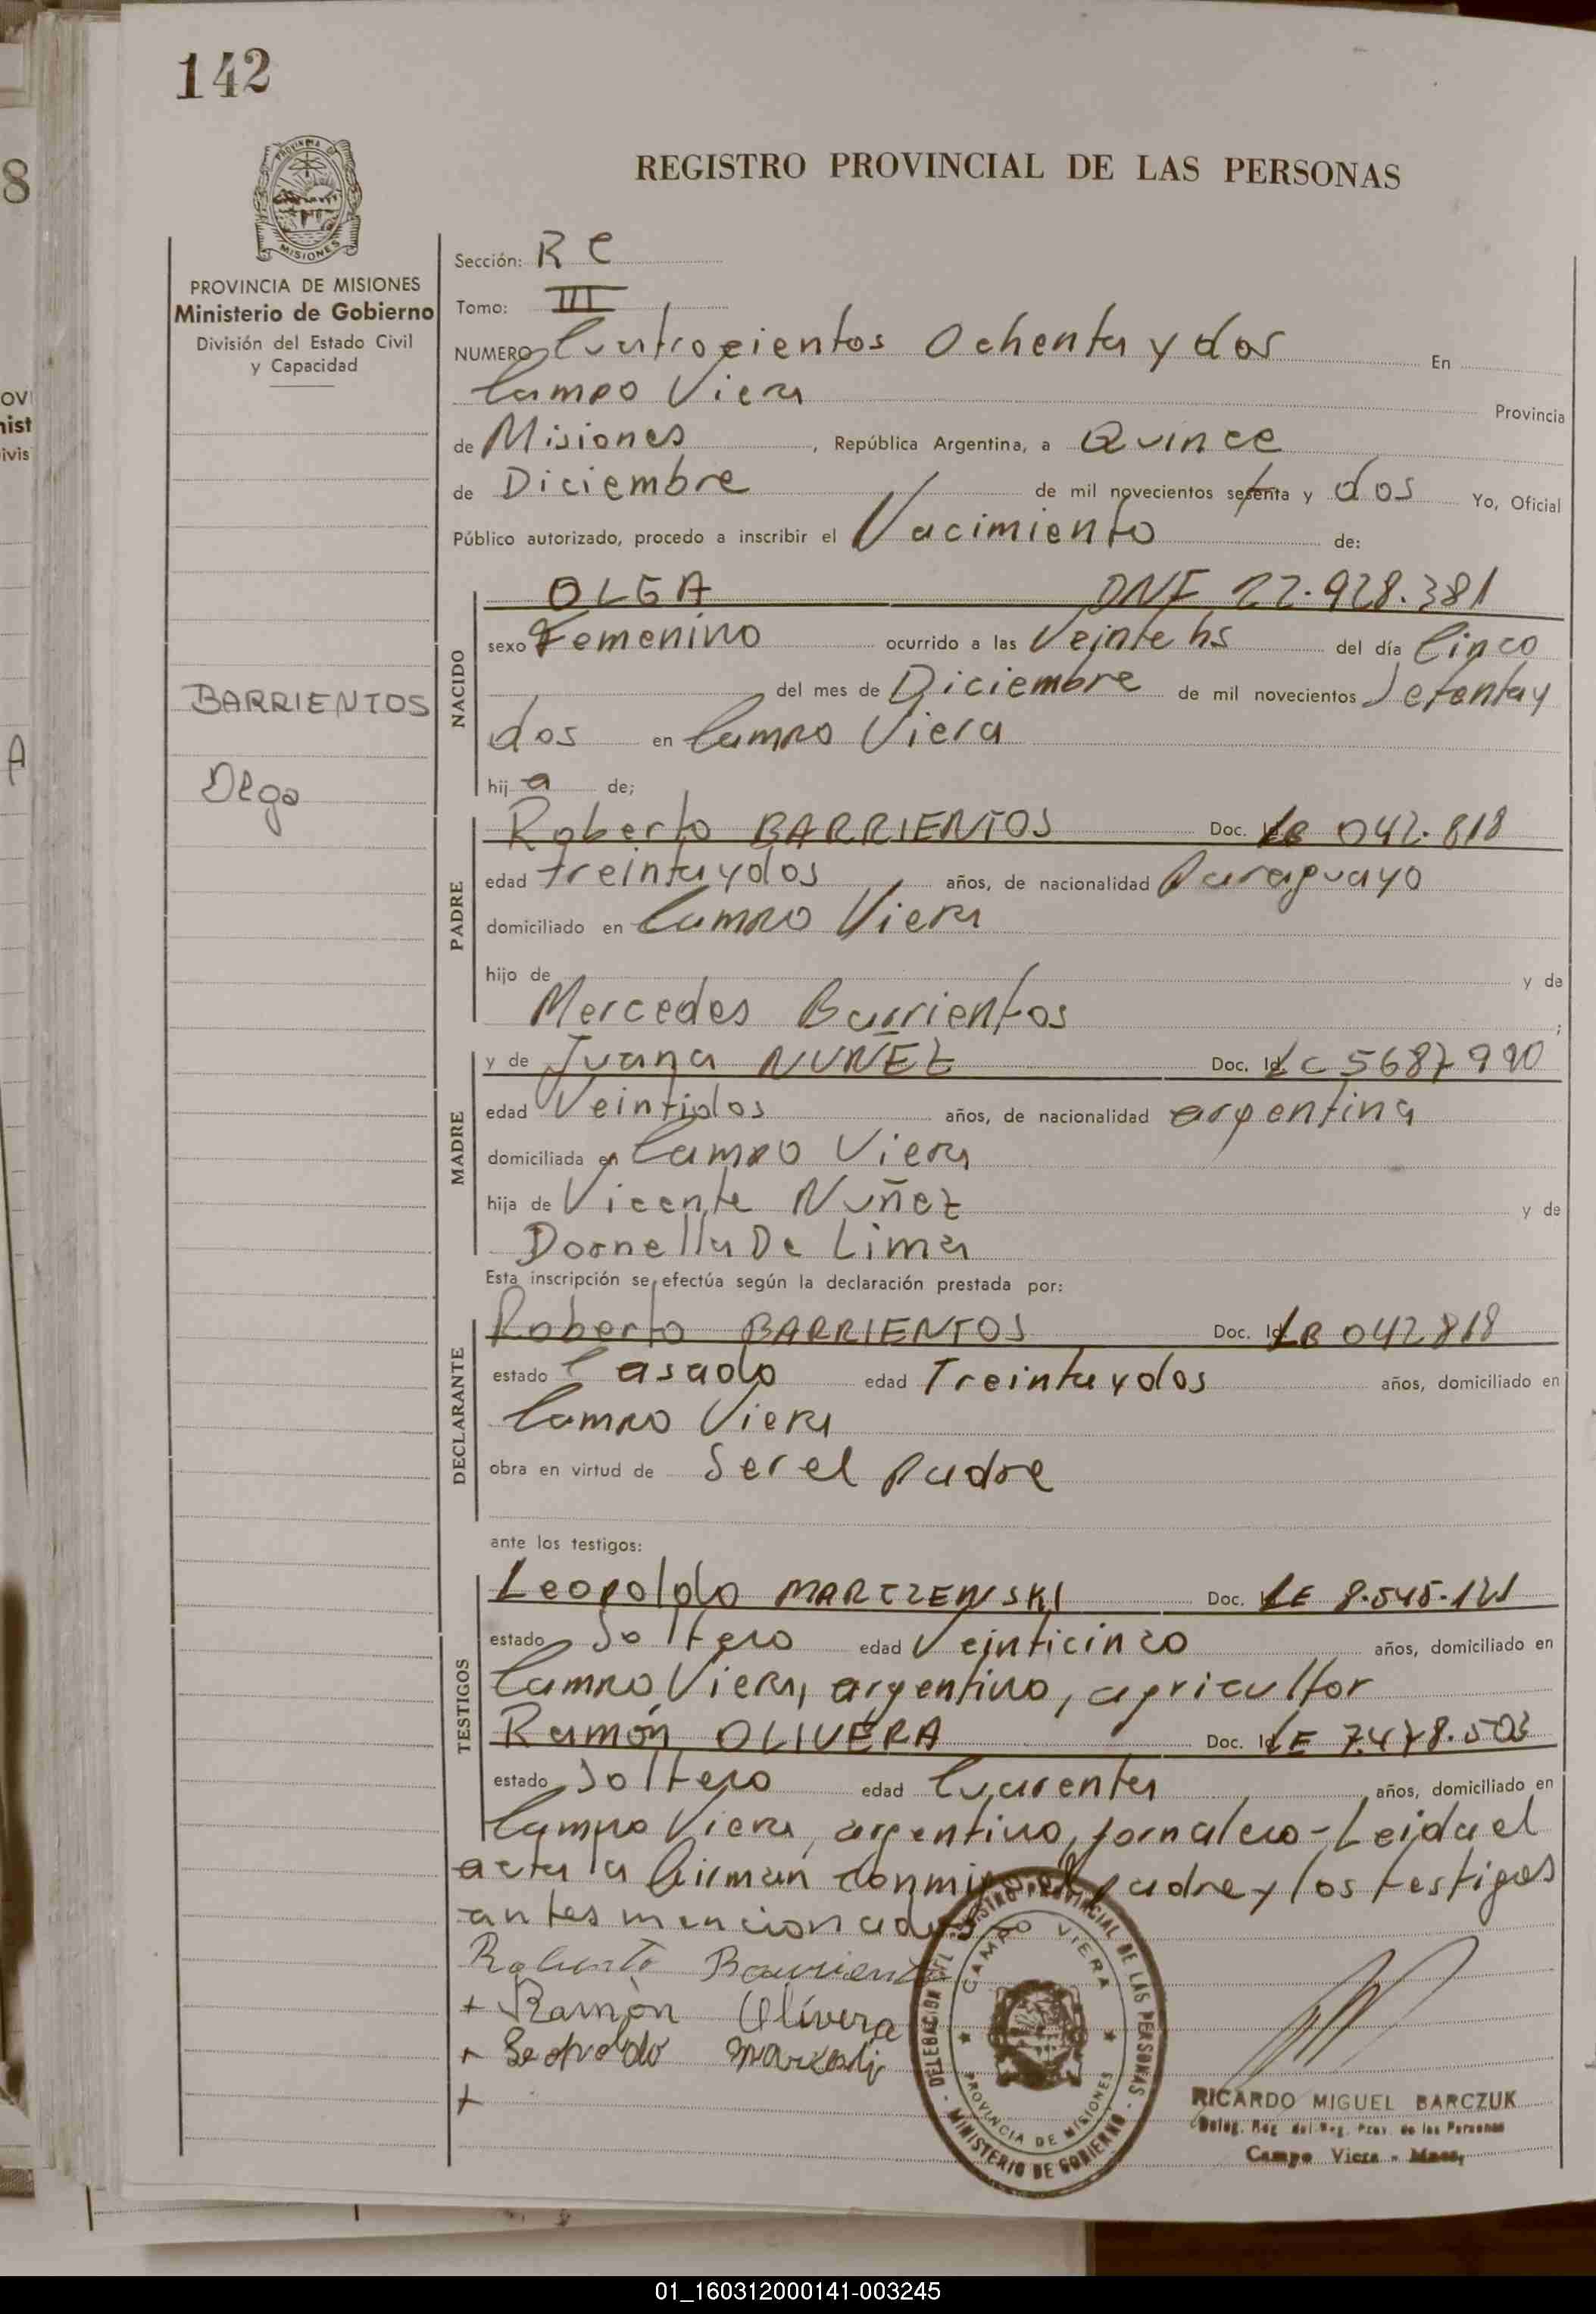 142
REGISTRO PROVINCIAL DE LAS PERSONAS
PROVINCIA DE MISIONES
Ministerio de Gobierno
División del Estado Civil
y Capacidad
BARRIENTOS
Olga
Sección: R C
Tomo: III
NUMERO Cuatrocientos Ochenta y dos En
Campo Viera Provincia
de Misiones, República Argentina, a Quince
de Diciembre de mil novecientos setenta y dos Yo, Oficial
Público autorizado, procedo a inscribir el Nacimiento de:
NACIDO
OLGA DNI 22.928.381
sexo Femenino ocurrido a las Veinte hs del día Cinco
del mes de Diciembre de mil novecientos Setenta y
dos en Campo Viera
hij a de;
PADRE
Roberto BARRIENTOS Doc. 042.818
edad treinta y dos años, de nacionalidad Paraguayo
domiciliado en Campo Viera
hijo de y de
Mercedes Barrientos ;
MADRE
y de Juana NUÑEZ Doc. Id LC
edad Veintidos años, de nacionalidad argentina
domiciliada en Campo Viera
hija de Vicente Nuñez y de
Dornella De Lima
Esta inscripción se efectúa según la declaración prestada por:
DECLARANTE
Roberto BARRIENTOS Doc. Id 042818
estado Casado edad Treinta y dos años, domiciliado en
Campo Viera
obra en virtud de Ser el padre
ante los testigos:
TESTIGOS
Leopoldo MARCZEWSKI Doc. LE
estado Soltero edad Veinticinco años, domiciliado en
Campo Viera, argentino, agricultor
Ramón OLIVERA Doc. Id LE 7.478.503
estado Soltero edad Cuarenta años, domiciliado en
Campo Viera, argentino, jornalero - Leida el
acta la firman conmigo el padre y los testigos
antes mencionados
Roberto Barrientos
+ Ramòn Olivera
+ Leopoldo
+
DELEGACIÓN CIVIL REGISTRO PROVINCIAL DE LAS PERSONAS - MINISTERIO DE GOBIERNO -
CAMPO VIERA
PROVINCIA DE MISIONES
RICARDO MIGUEL BARCZUK
Deleg. Reg. del Reg. Prov. de las Personas
Campo Viera - Mnes,
01_160312000141-003245